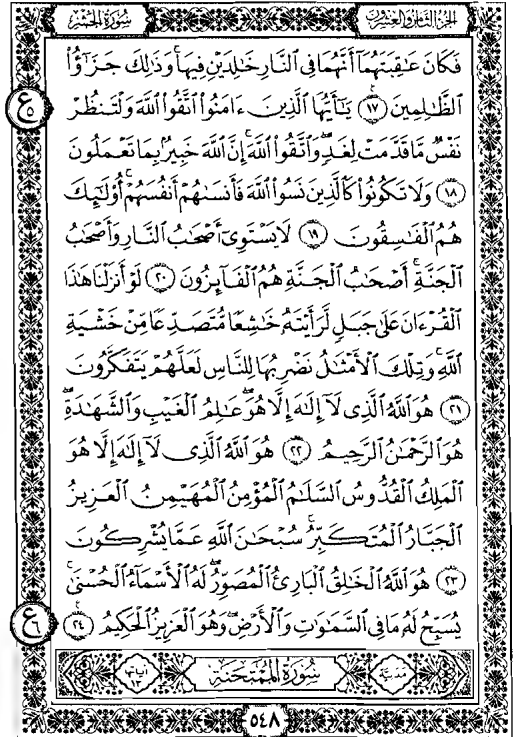 الجزء الثامن والعشرون سورة الحشر
فَكَانَ عَـٰقِبَتَهُمَآ أَنَّهُمَا فِى ٱلنَّارِ خَـٰلِدَيْنِ فِيهَا ۚ وَذَٰلِكَ جَزَٰٓؤُا۟
ٱلظَّـٰلِمِينَ ١٧ يَـٰٓأَيُّهَا ٱلَّذِينَ ءَامَنُوا۟ ٱتَّقُوا۟ ٱللَّهَ وَلْتَنظُرْ
ع ٥
نَفْسٌ مَّا قَدَّمَتْ لِغَدٍ ۖ وَٱتَّقُوا۟ ٱللَّهَ ۚ إِنَّ ٱللَّهَ خَبِيرٌۢ بِمَا تَعْمَلُونَ
١٨ وَلَا تَكُونُوا۟ كَٱلَّذِينَ نَسُوا۟ ٱللَّهَ فَأَنسَىٰهُمْ أَنفُسَهُمْ ۚ أُو۟لَـٰٓئِكَ
هُمُ ٱلْفَـٰسِقُونَ ١٩ لَا يَسْتَوِىٓ أَصْحَـٰبُ ٱلنَّارِ وَأَصْحَـٰبُ
ٱلْجَنَّةِ ۚ أَصْحَـٰبُ ٱلْجَنَّةِ هُمُ ٱلْفَآئِزُونَ ٢٠ لَوْ أَنزَلْنَا هَـٰذَا
ٱلْقُرْءَانَ عَلَىٰ جَبَلٍ لَّرَأَيْتَهُۥ خَـٰشِعًا مُّتَصَدِّعًا مِّنْ خَشْيَةِ
ٱللَّهِ ۚ وَتِلْكَ ٱلْأَمْثَـٰلُ نَضْرِبُهَا لِلنَّاسِ لَعَلَّهُمْ يَتَفَكَّرُونَ
٢١ هُوَ ٱللَّهُ ٱلَّذِى لَآ إِلَـٰهَ إِلَّا هُوَ ۖ عَـٰلِمُ ٱلْغَيْبِ وَٱلشَّهَـٰدَةِ ۖ
هُوَ ٱلرَّحْمَـٰنُ ٱلرَّحِيمُ ٢٢ هُوَ ٱللَّهُ ٱلَّذِى لَآ إِلَـٰهَ إِلَّا هُوَ
ٱلْمَلِكُ ٱلْقُدُّوسُ ٱلسَّلَـٰمُ ٱلْمُؤْمِنُ ٱلْمُهَيْمِنُ ٱلْعَزِيزُ
ٱلْجَبَّارُ ٱلْمُتَكَبِّرُ ۚ سُبْحَـٰنَ ٱللَّهِ عَمَّا يُشْرِكُونَ
٢٣ هُوَ ٱللَّهُ ٱلْخَـٰلِقُ ٱلْبَارِئُ ٱلْمُصَوِّرُ ۖ لَهُ ٱلْأَسْمَآءُ ٱلْحُسْنَىٰ ۚ
يُسَبِّحُ لَهُۥ مَا فِى ٱلسَّمَـٰوَٰتِ وَٱلْأَرْضِ ۖ وَهُوَ ٱلْعَزِيزُ ٱلْحَكِيمُ ٢٤
ع ٦
مدنية سُورَةُ المُمْتَحنَةِ آياتها ١٣
٥٤٨